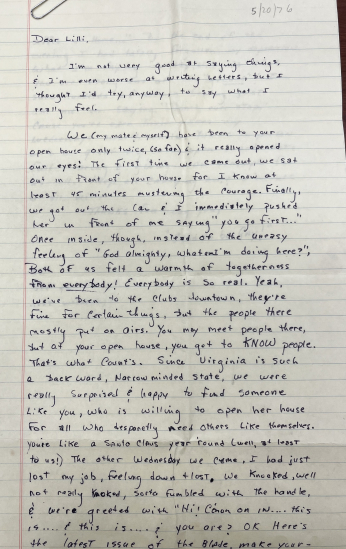 5/20/76
Dear Lilli,
I'm not very good at saying things,
& I'm even worse at writing letters, but I
thought I'd try, anyway, to say what I
really feel.
We (my mate & myself) have been to your
open house only twice, (so far) & it really opened
our eyes! The first time we came out, we sat
out in front of your house for I know at
least 45 minutes mustering the courage. Finally,
we got out the car & I immediately pushed
her in front of me saying "you go first..."
Once inside, though, instead of the uneasy
feeling of "God almighty, what am I doing here?",
Both of us felt a warmth of togetherness
from everybody! Everybody is so real. Yeah,
we've been to the clubs downtown, they're
fine for certain things, but the people there
mostly put on airs. You may meet people there,
but at your open house, you get to KNOW people.
That's what counts. Since Virginia is such
a backward, narrowminded state, we were
really surprised & happy to find someone
like you, who is willing to open her house
for all who desperately need others like themselves.
You're like a Santa Claus year round (well, at least
to us!) The other Wednesday we came, I had just
lost my job, feeling down & lost. We knocked, well
not really knocked, sorta fumbled with the handle,
& we're greeted with "Hi! C'mon on in.... this
is.... & this is.... & you are? OK Here's
the latest issue of the Blade, make your-